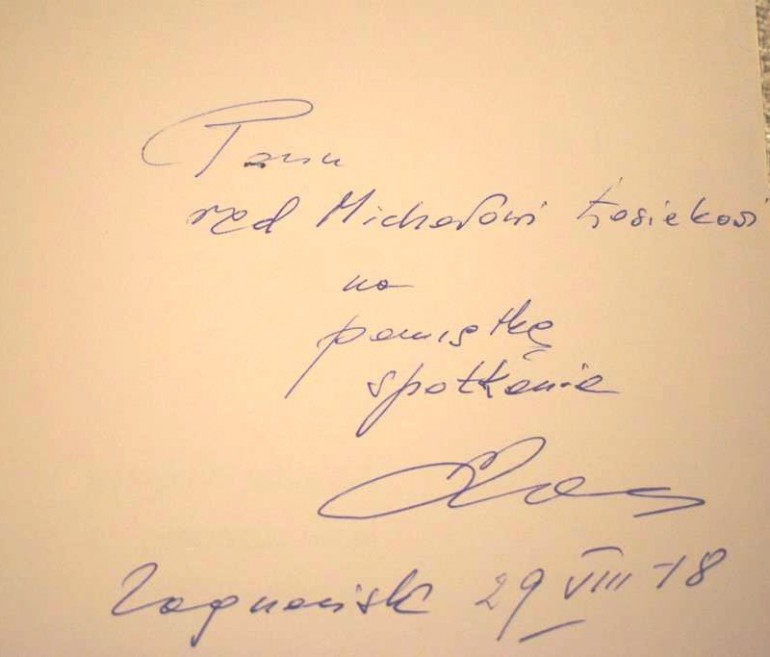 Panu
red Michałowi Łosiekowi
na
pamiątkę
spotkania
Zagnańsk 29 VIII 18